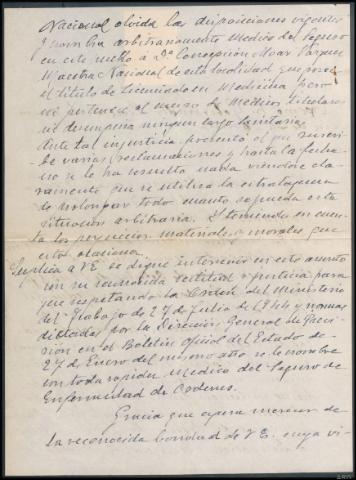 Nacional olvida las disposiciones vigentes
y nombra arbitrariamente Medico del Seguro
en este medio a Dª Concepción Mar Vazquez
Maestra Nacional de esta localidad que posee
el titulo de Licenciada en Medicina pero
no pertenece al cuerpo de Medicos titulares
ni desempeña ningun cargo Sanitario.
Ante tal injusticia presenta el que suscribe
varias reclamaciones y hasta la fecha
no se le ha resuelto nada viendose cla-
ramente que se utiliza la estratagema
de prolongar todo cuanto se pueda esta
situacion arbitraria. Y teniendo en cuen-
ta los perjuicios materiales y morales que
esto ocasiona.
Suplica a VE se digne intervenir en este asunto
con su reconocida rectitud y justicia para
que respetando la Orden del Ministerio
del Trabajo de 27 de Julio de 1944 y normas
dictadas por la Dirección General de Previ-
sión en el Boletin Oficial del Estado de
27 de Enero del mismo año se le nombre
con toda rapidez Medico del Seguro de
Enfermedad de
Gracia que espera merecer de
la reconocida bondad de VE. cuya vi-